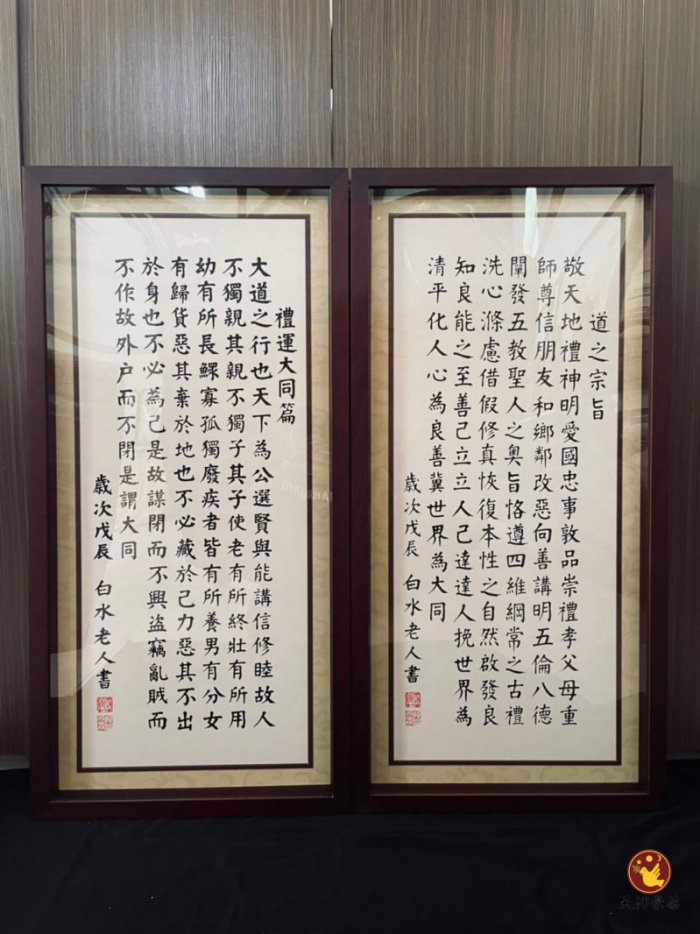 道之宗旨
敬天地禮神明愛國忠事敦品崇禮孝父母重
師尊信朋友和鄉鄰改惡向善講明五倫八德
闡發五教聖人之奧旨恪遵四維綱常之古禮
洗心滌慮借假修真恢復本性之自然啟發良
知良能之至善己立立人己達達人挽世界為
清平化人心為良善冀世界為大同
歲次戊辰 白水老人書
禮運大同篇
大道之行也天下為公選賢與能講信修睦故人
不獨親其親不獨子其子使老有所終壯有所用
幼有所長鰥寡孤獨廢疾者皆有所養男有分女
有歸貨惡其棄於地也不必藏於己力惡其不出
於身也不必為己是故謀閉而不興盜竊亂賊而
不作故外户而不閉是謂大同
歲次戊辰 白水老人書